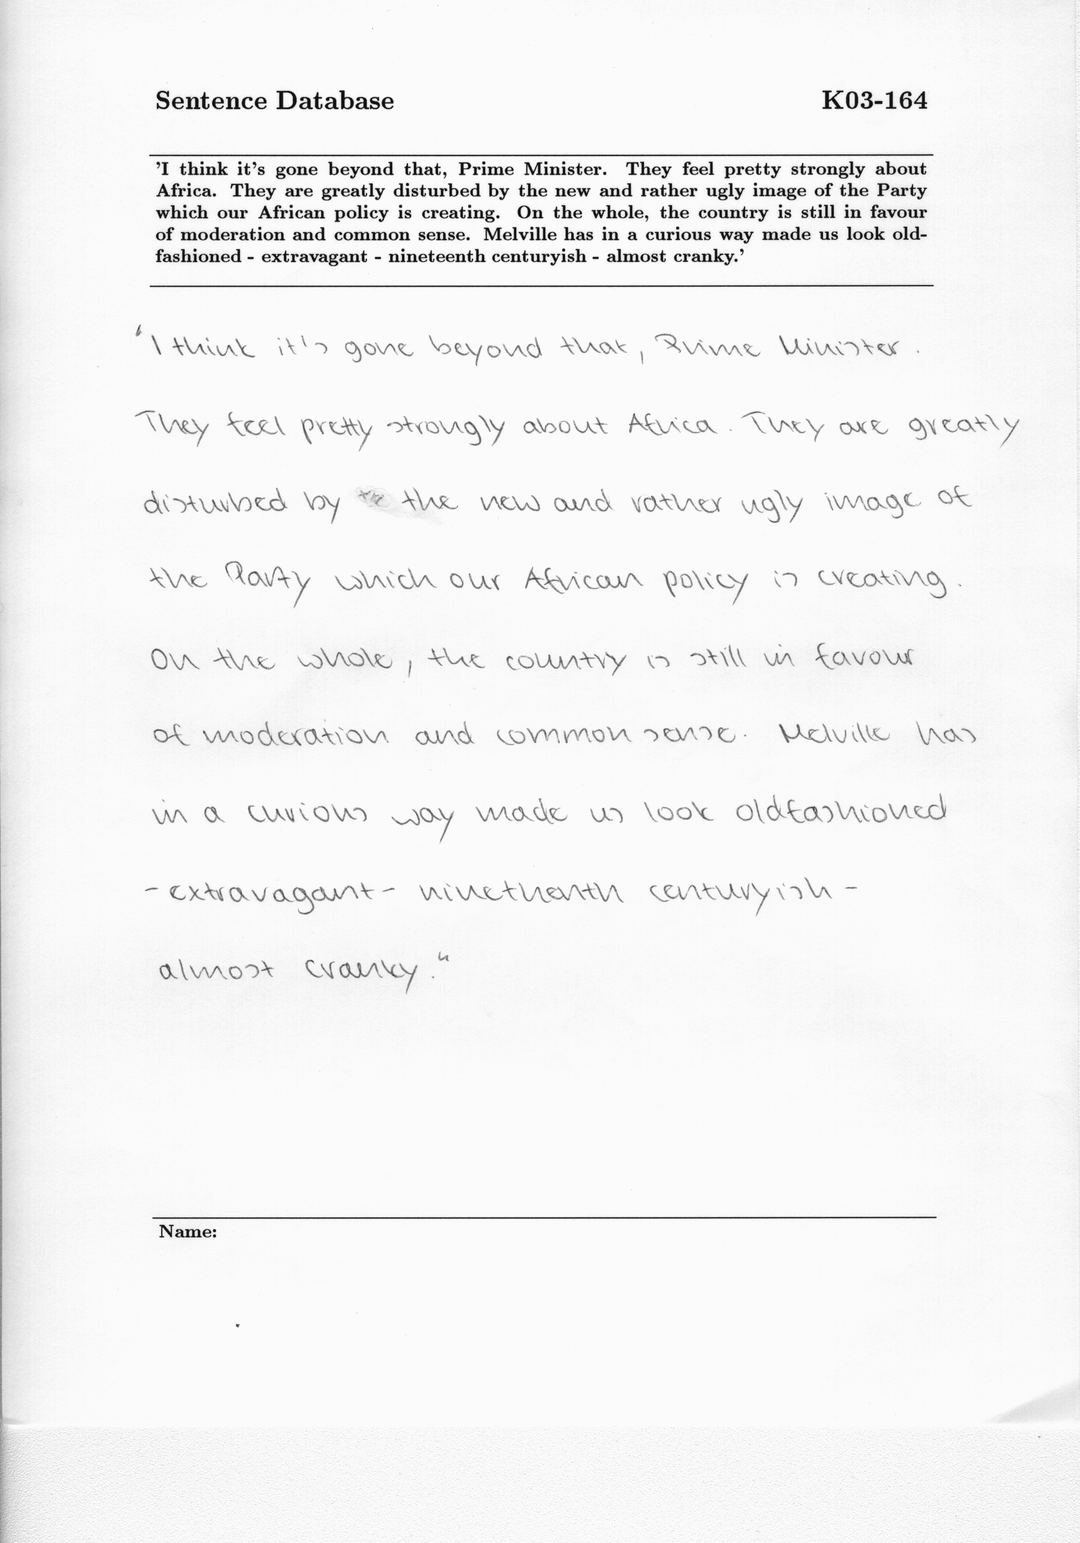 Sentence Database K03-164
'I think it's gone beyond that, Prime Minister. They feel pretty strongly about
Africa. They are greatly disturbed by the new and rather ugly image of the Party
which our African policy is creating. On the whole, the country is still in favour
of moderation and common sense. Melville has in a curious way made us look old-
fashioned - extravagant - nineteenth centuryish - almost cranky.'
"I think it's gone beyond that, Prime Minister.
They feel pretty strongly about Africa. They are greatly
disturbed by the new and rather ugly image of
the Party which our African policy is creating.
On the whole, the country is still in favour
of moderation and common sense. Melville has
in a curious way made us look oldfashioned
- extravagant - ninethenth centuryish -
almost cranky."
Name: